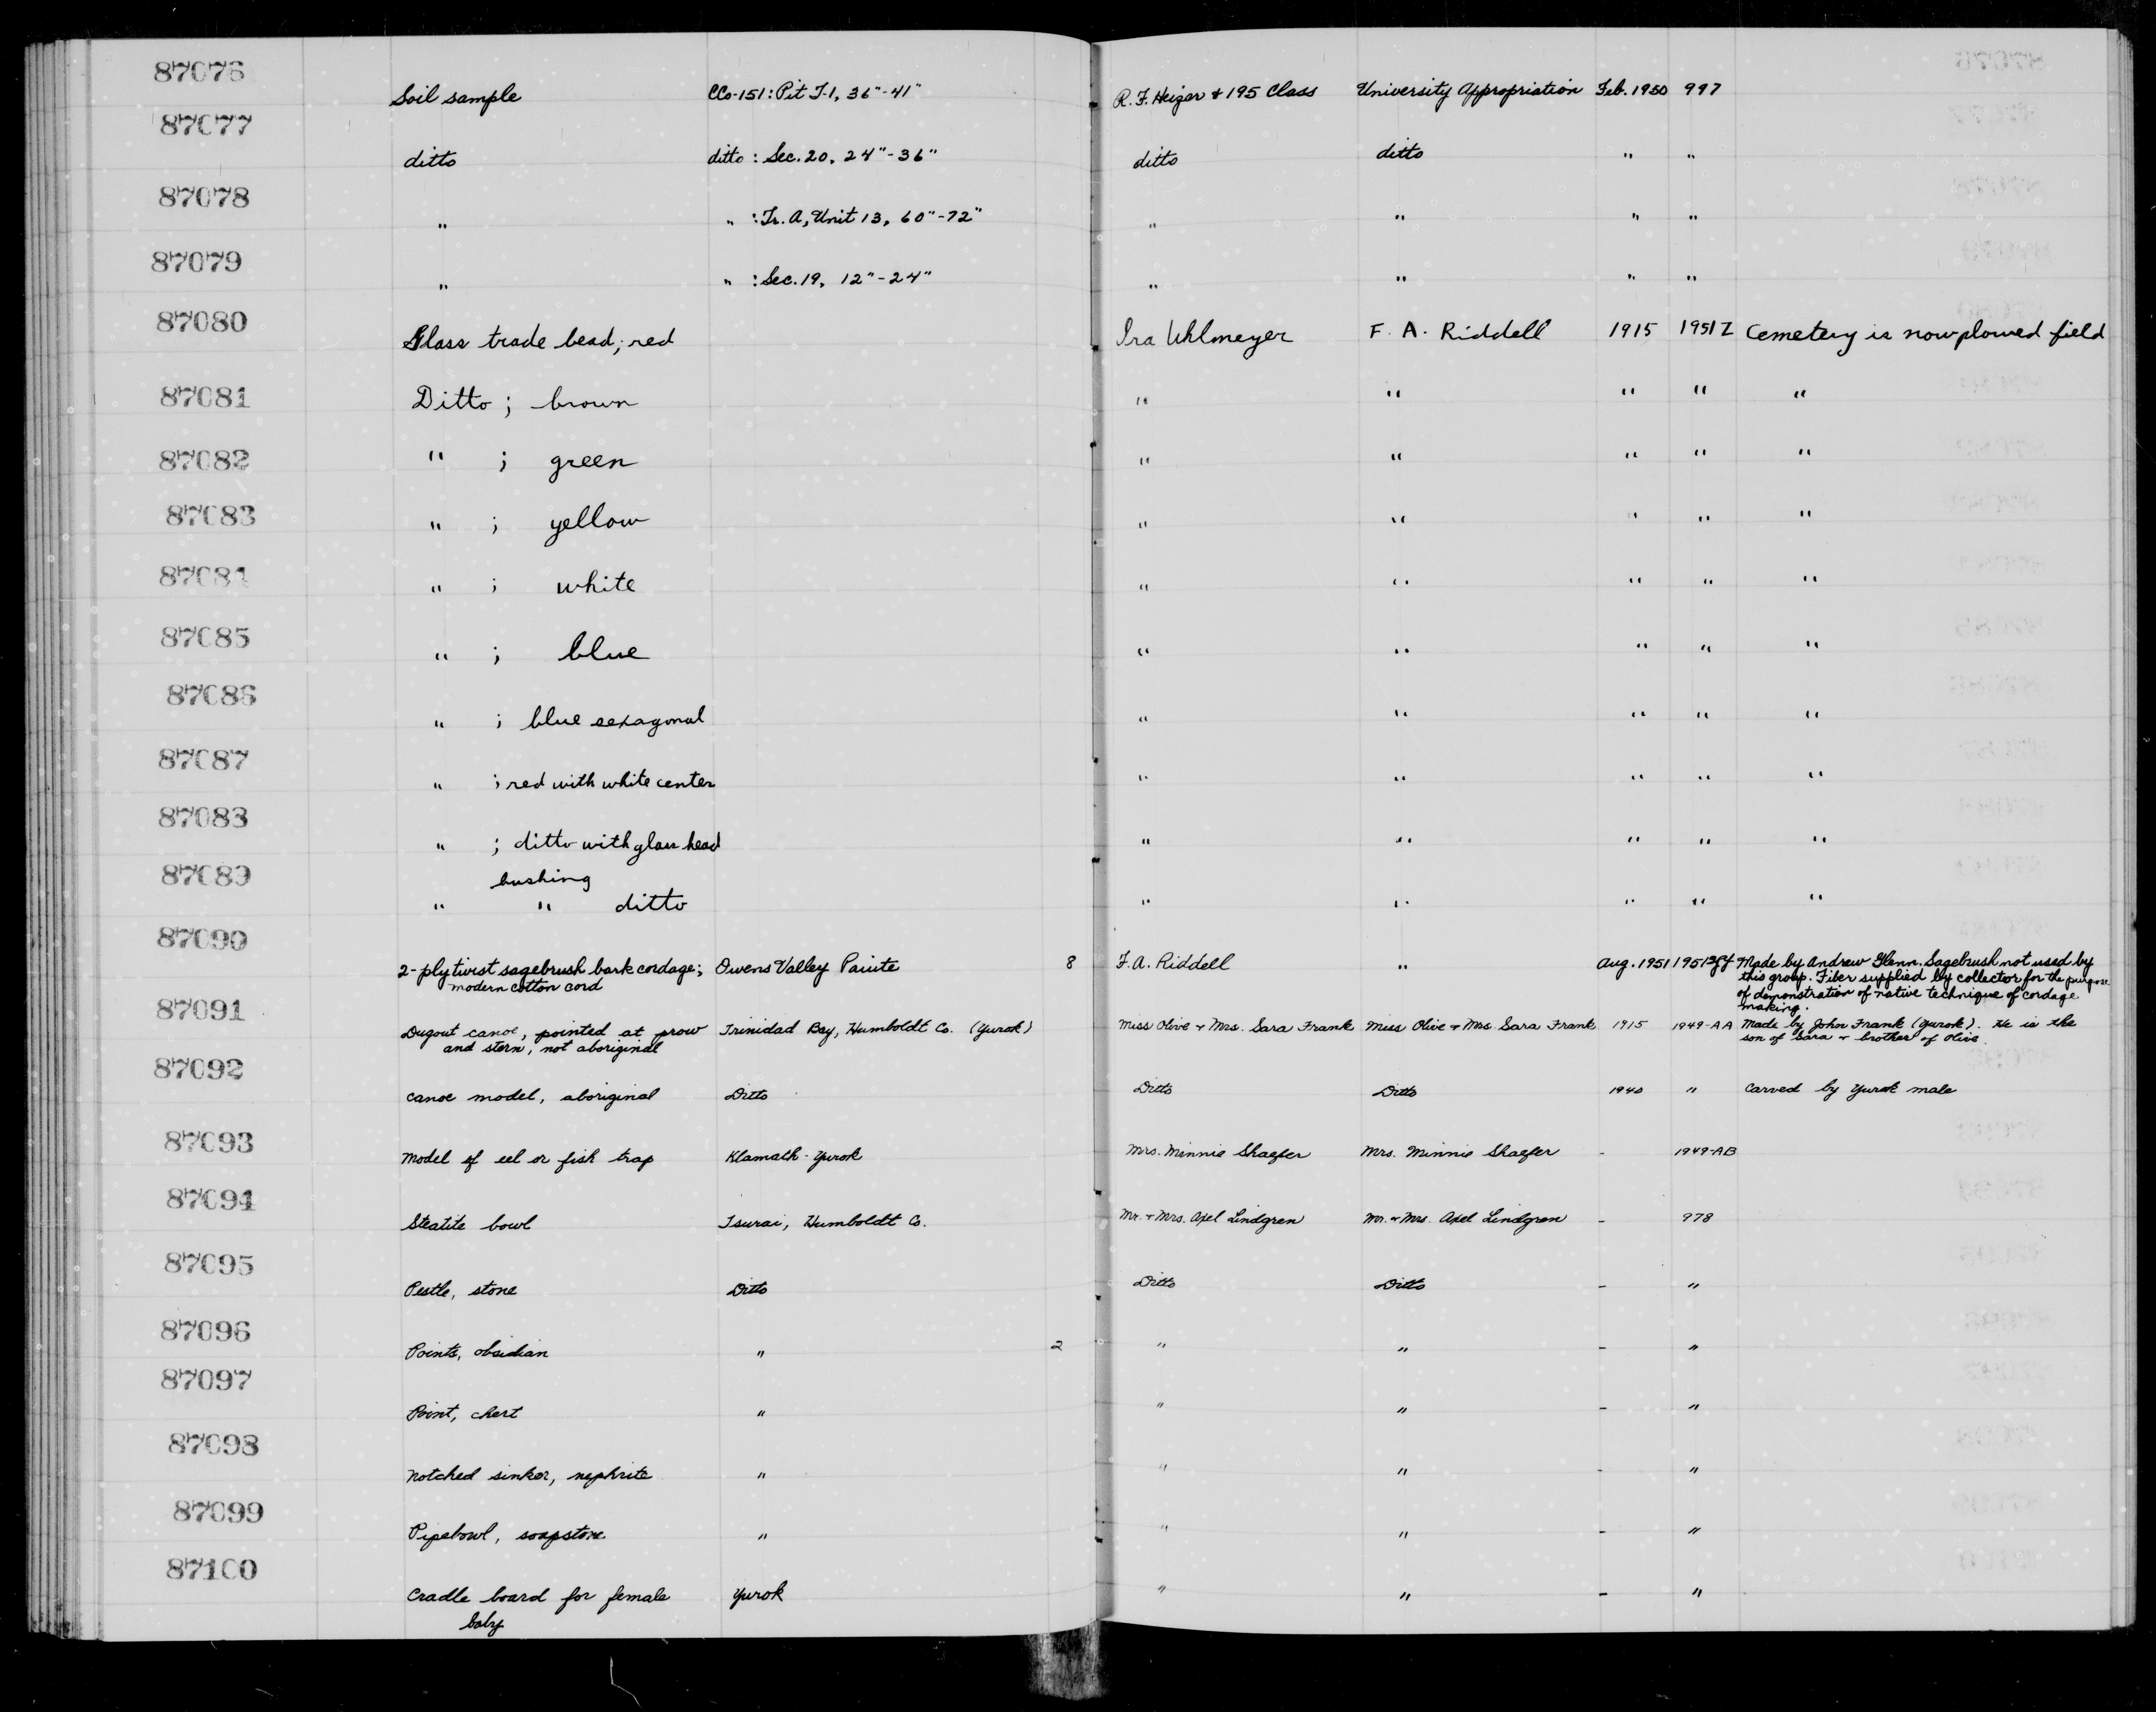 87076 Soil sample CCo-151: Pit J-1, 36"-41" R. F. Heizer & 195 Class University Appropriation Feb. 1950 997
87077 ditto ditto : Sec. 20, 24"-36" ditto ditto " "
87078 " " : Tr. A, Unit 13, 60"-72" " " " "
87079 " " : Sec. 19, 12"-24" " " " "
87080 Glass trade bead; red Ira Uhlmeyer F. A. Riddell 1915 1951 Z Cemetery is now plowed field
87081 Ditto ; brown " " " " "
87082 " ; green " " " " "
87083 " ; yellow " " " " "
87084 " ; white " " " " "
87085 " ; blue " " " " "
87086 " ; blue sexagonal " " " " "
87087 " ; red with white center " " " " "
87088 " ; ditto with glass head " " " " "
bushing
87089 " " ditto " " " " "
87090 2-ply twist sagebrush bark cordage; Owens Valley Paiute 8 F. A. Riddell " Aug. 1951 Made by Andrew Glenn. Sagebrush not used by
modern cotton cord this group. Fiber supplied by collector for the purpose
of demonstration of native technique of cordage
making.
87091 Dugout canoe, pointed at prow Trinidad Bay, Humboldt Co. (Yurok) Miss Olive + Mrs. Sara Frank Miss Olive + Mrs. Sara Frank 1915 1949-AA Made by John Frank (Yurok). He is the
and stern, not aboriginal son of Sara + brother of Olive.
87092 Canoe model, aboriginal Ditto Ditto Ditto 1940 " Carved by Yurok male
87093 Model of eel or fish trap Klamath - Yurok Mrs. Minnie Shaefer Mrs. Minnie Shaefer - 1949-AB
87094 Steatite bowl Tsurai, Humboldt Co. Mr. + Mrs. Axel Lindgren Mr. + Mrs. Axel Lindgren - 978
87095 Pestle, stone Ditto Ditto Ditto - "
87096 Points, obsidian " 2 " " - "
87097 Point, chert " " " - "
87098 Notched sinker, nephrite " " " - "
87099 Pipebowl, soapstone " " " - "
87100 Cradle board for female Yurok " " - "
baby